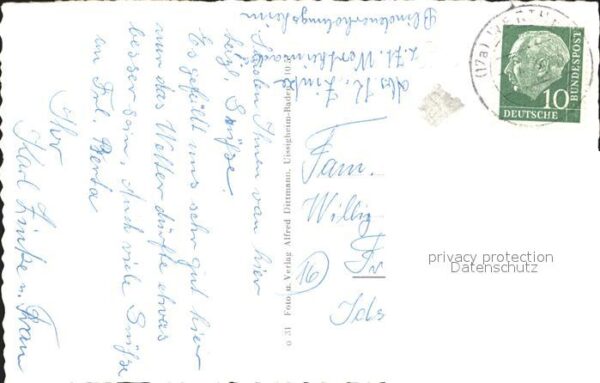 Abs. K. Zinke
z. Zt. Wertheim a/
Blindenerholungsheim
Senden Ihnen von hier
herzl. Grüße.
Es gefällt uns sehr gut hier
nur das Wetter dürfte etwas
besser sein. Auch viele Grüße
an Frl. Berta
Ihr
Karl Zinke u. Frau
o 31 Foto u. Verlag Alfred Dittmann, Uissigheim-Baden
(17a)
10
DEUTSCHE
BUNDESPOST
Fam.
Willig
16
Fr
Ids
privacy protection
Datenschutz